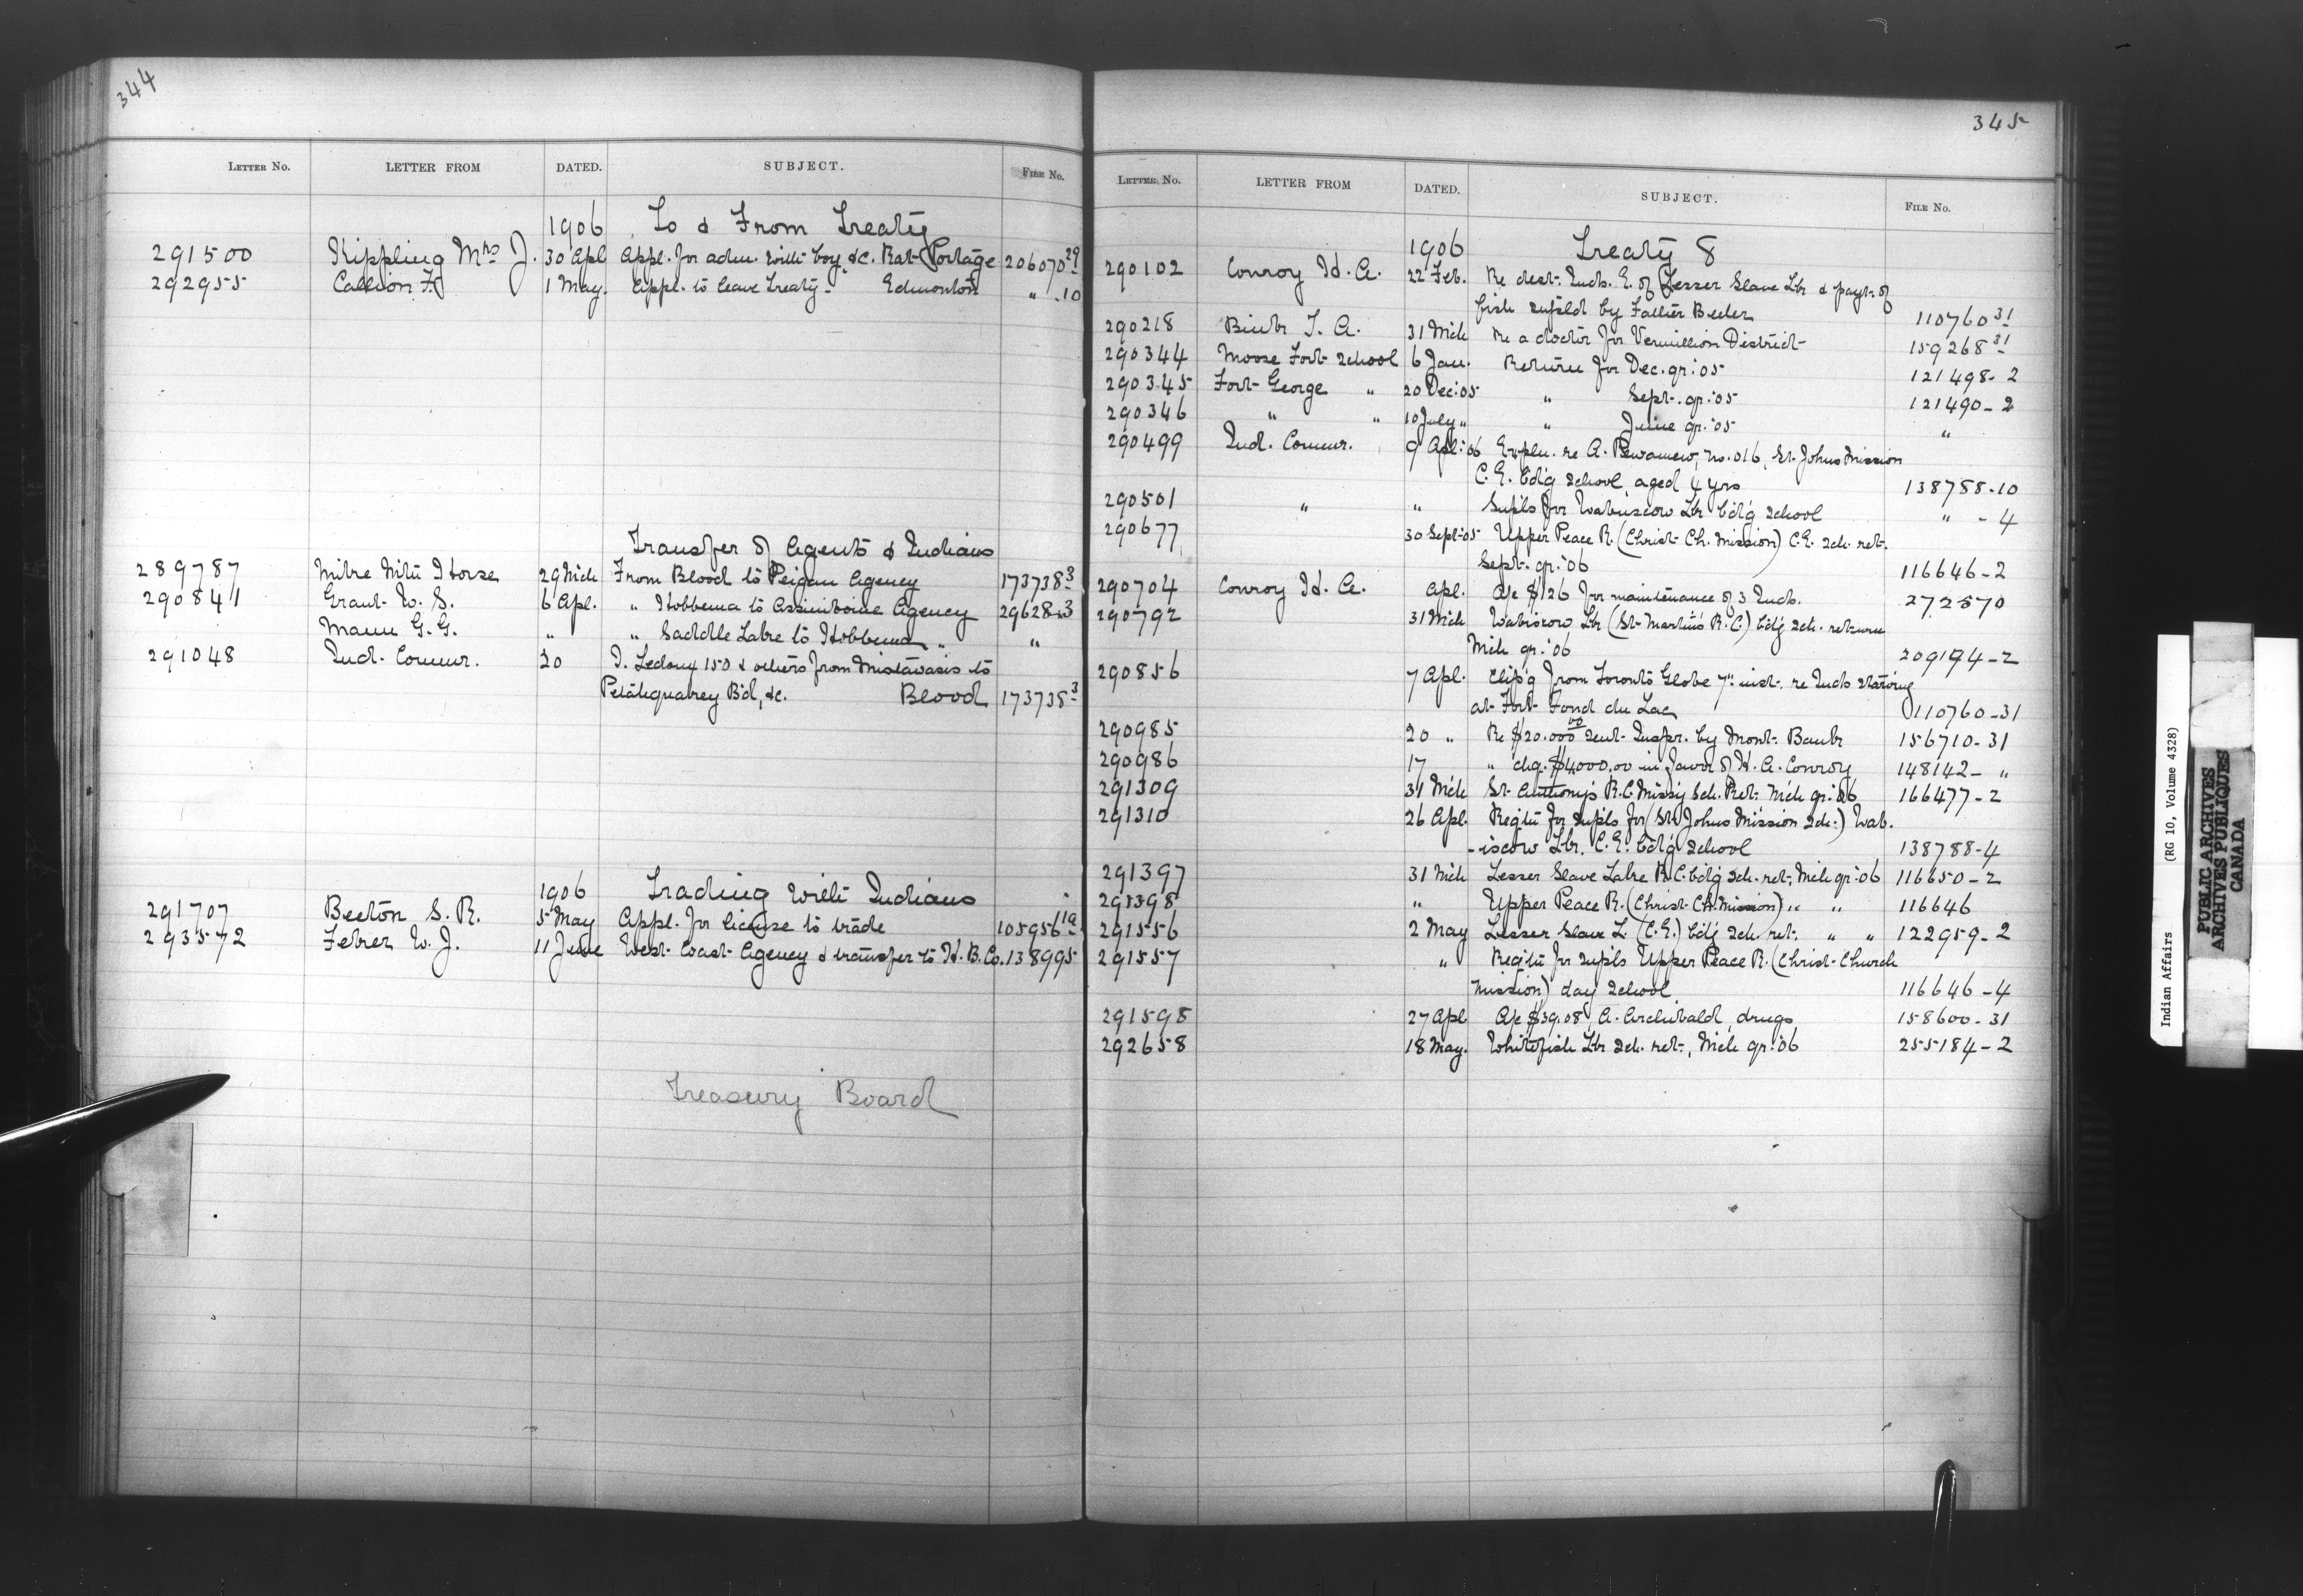 344
LETTER NO. LETTER FROM DATED. SUBJECT. FILE NO.
1906 To & From Treaty
291500 Kippling Mrs J. 30 Apl Appl. for adm. with boy &c. Rat Portage 206070 29
292955 Callion F. 1 May. Appl. to leave Treaty - Edmonton " .10
Transfer of Agents & Indians
289787 Horse 29 Mch From Blood to Peigan Agency 173738-3
290841 Grant W. S. 6 Apl. " Hobbema to Assiniboine Agency 29628-3
Mann G. G. " " Saddle Lake to Hobbema " "
291048 Ind. Commr. 20 Ledoux 150 & others from Mistawasis to
Petaquakey Bd, &c. Blood 173738-3
1906 Trading with Indians
291707 Beeton S. R. 5 May Appl. for license to trade 105956 11a
293572 W. J. 11 June West Coast Agency & transfer to H. B. Co. 138995
Treasury Board
345
LETTER NO. LETTER FROM DATED. SUBJECT. FILE NO.
1906 Treaty 8
290102 Conroy H. A. 22 Feb. Re dest. Inds. E. of Lesser Slave Lk & payt. of
fish supld by Father
110760-31
290218 T. A. 31 Mch Re a doctor for Vermillion District 159268-31
290344 Moose Fort School 6 Jan. Return for Dec. qr: 05 121498-2
290345 Fort George " 20 Dec: 05 " Sept. qr: 05 121490-2
290346 " " 10 July " " June qr: 05 "
290499 Ind. Commr. 9 Apl: 06 Expln. re A. no. 016, St. Johns Mission
C. E. bd'g School aged 4 yrs 138788-10
290501 " " Supls for Wabiscow Lk bd'g School " - 4
290677 30 Sept-05 Upper Peace R. (Christ Ch. Mission) C.E. Sch. ret.
Sept. qr: 06 116646-2
290704 Conroy H. A. Apl. A/c $126 for maintenance of 3 Inds. 272570
290792 31 Mch Wabiscow Lk (St Martin's R.C.) bd'g Sch. return
Mch qr: 06 209194-2
290856 7 Apl. Clip'g from Toronto Globe 7th inst. re Inds starving
at Fort Fond du Lac 110760-31
290985 20 " Re $20.000 00 sent Inspr. by Mont. Bank 156710-31
290986 17 " chq. $4000.00 in favor of H. A. Conroy 148142- "
291309 31 Mch St Anthonys R.C. Missy Sch. Ret. Mch qr: 06 166477-2
291310 26 Apl. Reqtn for supls for (St Johns Mission Sch.) Wab.
-iscow Lk. C. E. bd'g School 138788-4
291397 31 Mch Lesser Slave Lake R.C. bd'g Sch. ret. Mch qr: 06 116650-2
291398 " Upper Peace R. (Christ Ch. Mission) " " 116646
291556 2 May Lesser Slave L. (C.E.) bd'g Sch. ret. " " 122959-2
291557 " Reqtn for supls Upper Peace R. (Christ Church
Mission) day School 116646-4
291598 27 Apl A/c $39.08 A. Archibald, drugs 158600-31
292658 18 May. Whitefish Lk Sch. ret., Mch qr: 06 255184-2
Indian Affairs (RG 10, Volume 4328)
PUBLIC ARCHIVES
ARCHIVES PUBLIQUES
CANADA